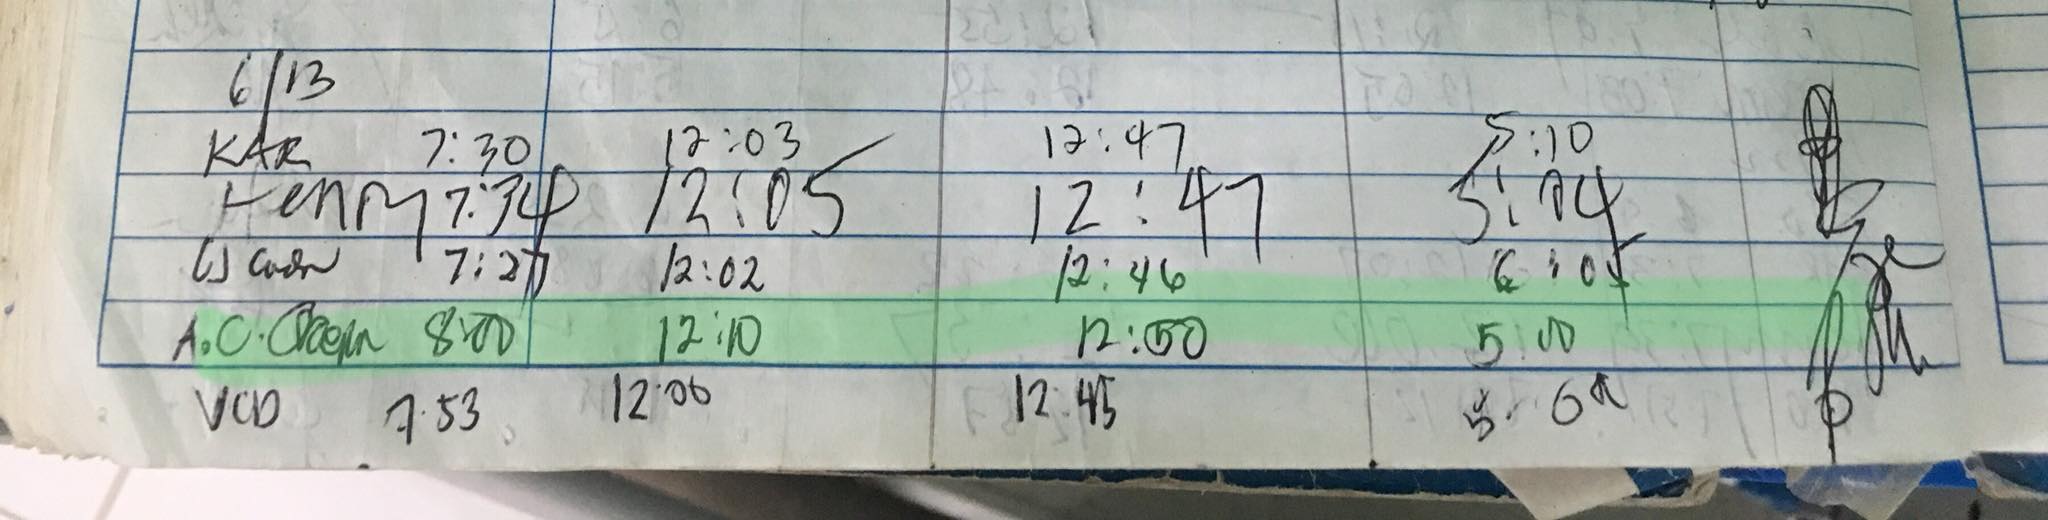 6/13
KAR 7:30 12:03 12:47 5:10
Henry 7:34 12:05 12:47 5:04
CJ 7:27 12:02 12:46 6:05
A.C. 8:00 12:10 12:50 5:00
VCD 7:53 12:00 12:45